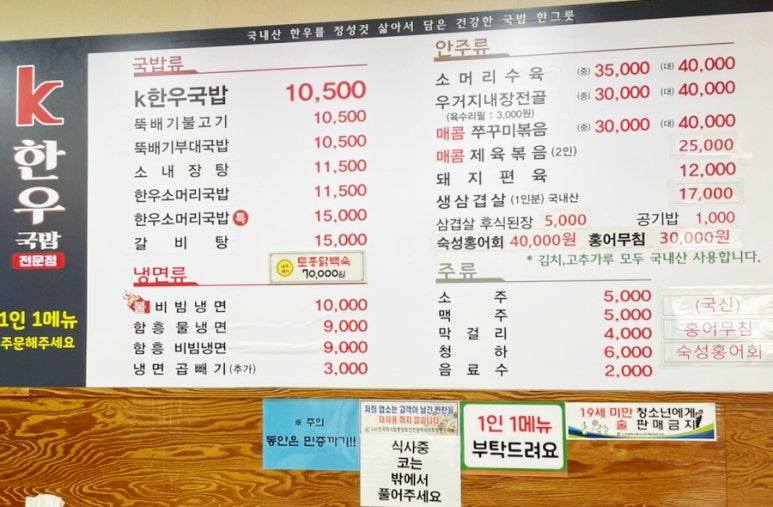 국내산 한우를 정성껏 삶아서 담은 건강한 국밥 한그릇
k
한우
국밥
전문점
1인 1메뉴
주문해주세요
국밥류
k한우국밥 10,500
뚝배기불고기 10,500
뚝배기부대국밥 10,500
소내장탕 11,500
한우소머리국밥 11,500
한우소머리국밥 특 15,000
갈비탕 15,000
토종닭백숙
70,000원
냉면류
불비빔냉면 10,000
함흥 물냉면 9,000
함흥 비빔냉면 9,000
냉면 곱빼기(추가) 3,000
안주류
소머리수육 (중) 35,000 (대) 40,000
우거지내장전골 (중) 30,000 (대) 40,000
(육수리필 : 3,000원)
매콤 쭈꾸미볶음 (중) 30,000 (대) 40,000
매콤 제육볶음(2인) 25,000
돼지편육 12,000
생삼겹살 (1인분) 국내산 17,000
삼겹살 후식된장 5,000 공기밥 1,000
숙성홍어회 40,000원 홍어무침 30,000원
* 김치,고추가루 모두 국내산 사용합니다.
주류
소주 5,000
맥주 5,000
막걸리 4,000
청하 6,000
음료수 2,000
(국산)
홍어무침
숙성홍어회
※ 주의
동안은 민증까기!!
저희 업소는 고객이 남긴 반찬을
재사용 하지 않습니다
식사중
코는
밖에서
풀어주세요
1인 1메뉴
부탁드려요
19세 미만 청소년에게
술 판매금지